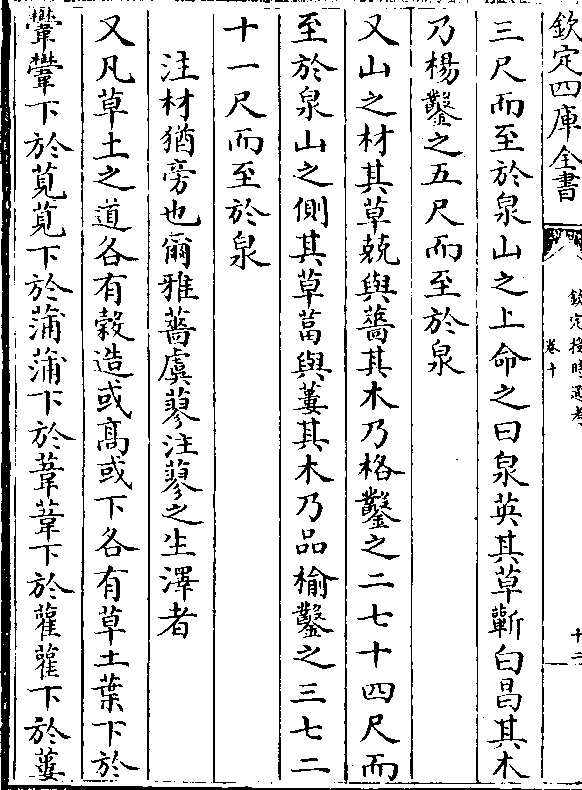 欽定四庫全書
欽定授時通考
卷十
十二
三尺而至於泉山之上命之曰泉英其草蘄白昌其木
乃楊鑿之五尺而至於泉
又山之材其草兢與薔其木乃格鑿之二七十四尺而
至於泉山之側其草葍與蔞其木乃品榆鑿之三七二
十一尺而至於泉
注材猶旁也爾雅薔虞蓼注蓼之生澤者
又凡草土之道各有穀造或髙或下各有草土葉下於
虆虆下於莧莧下於蒲蒲下於葦葦下於雚雚下於蔞